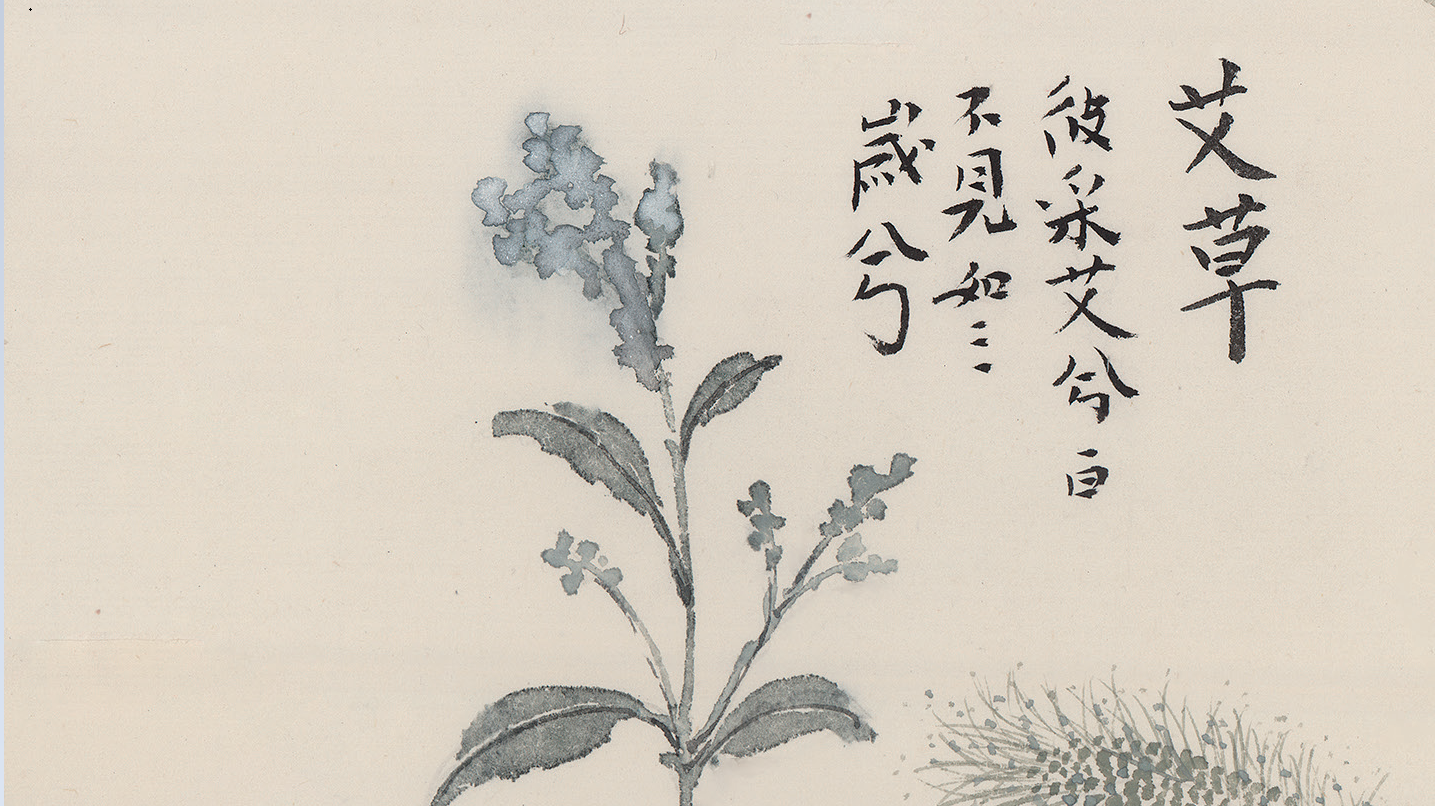 艾草
彼采艾兮一日
不見如三
歲兮